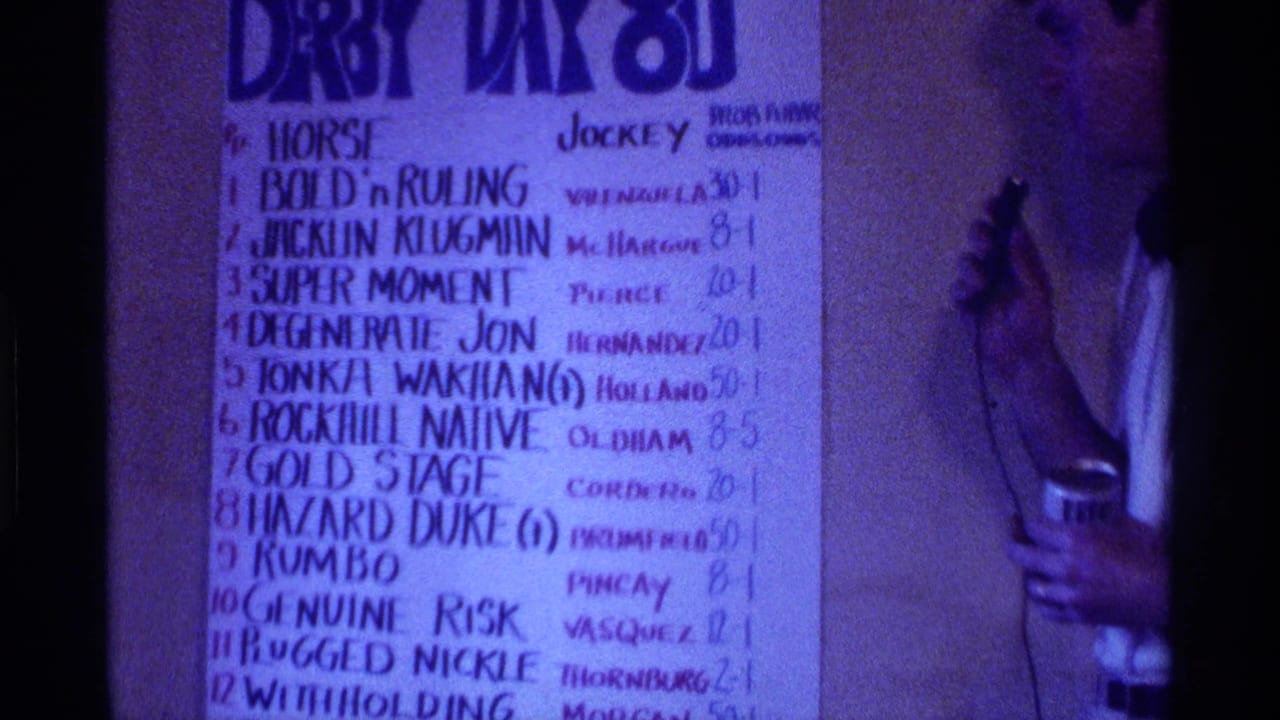 DERBY DAY 80
PP. HORSE JOCKEY PROB
1 BOLD 'n RULING VALENZUELA 30-1
2 JACKLIN KLUGMAN McHARGUE 8-1
3 SUPER MOMENT PIERCE 20-1
4 DEGENERATE JON HERNANDEZ 20-1
5 TONKA WAKHAN(1) HOLLAND 50-1
6 ROCKHILL NATIVE OLDHAM 8-5
7 GOLD STAGE CORDERO 20-1
8 HAZARD DUKE(1) BRUMFIELD 50-1
9 RUMBO PINCAY 8-1
10 GENUINE RISK VASQUEZ 12-1
11 PLUGGED NICKLE THORNBURG 2-1
12 WITHHOLDING MORGAN 50-1